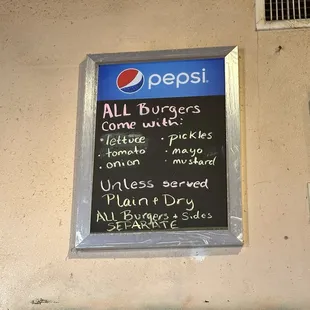 pepsi
ALL Burgers
Come with:
• lettuce • pickles
• tomato • mayo
• onion • mustard
Unless served
Plain + Dry
ALL Burgers + Sides
SEPARATE